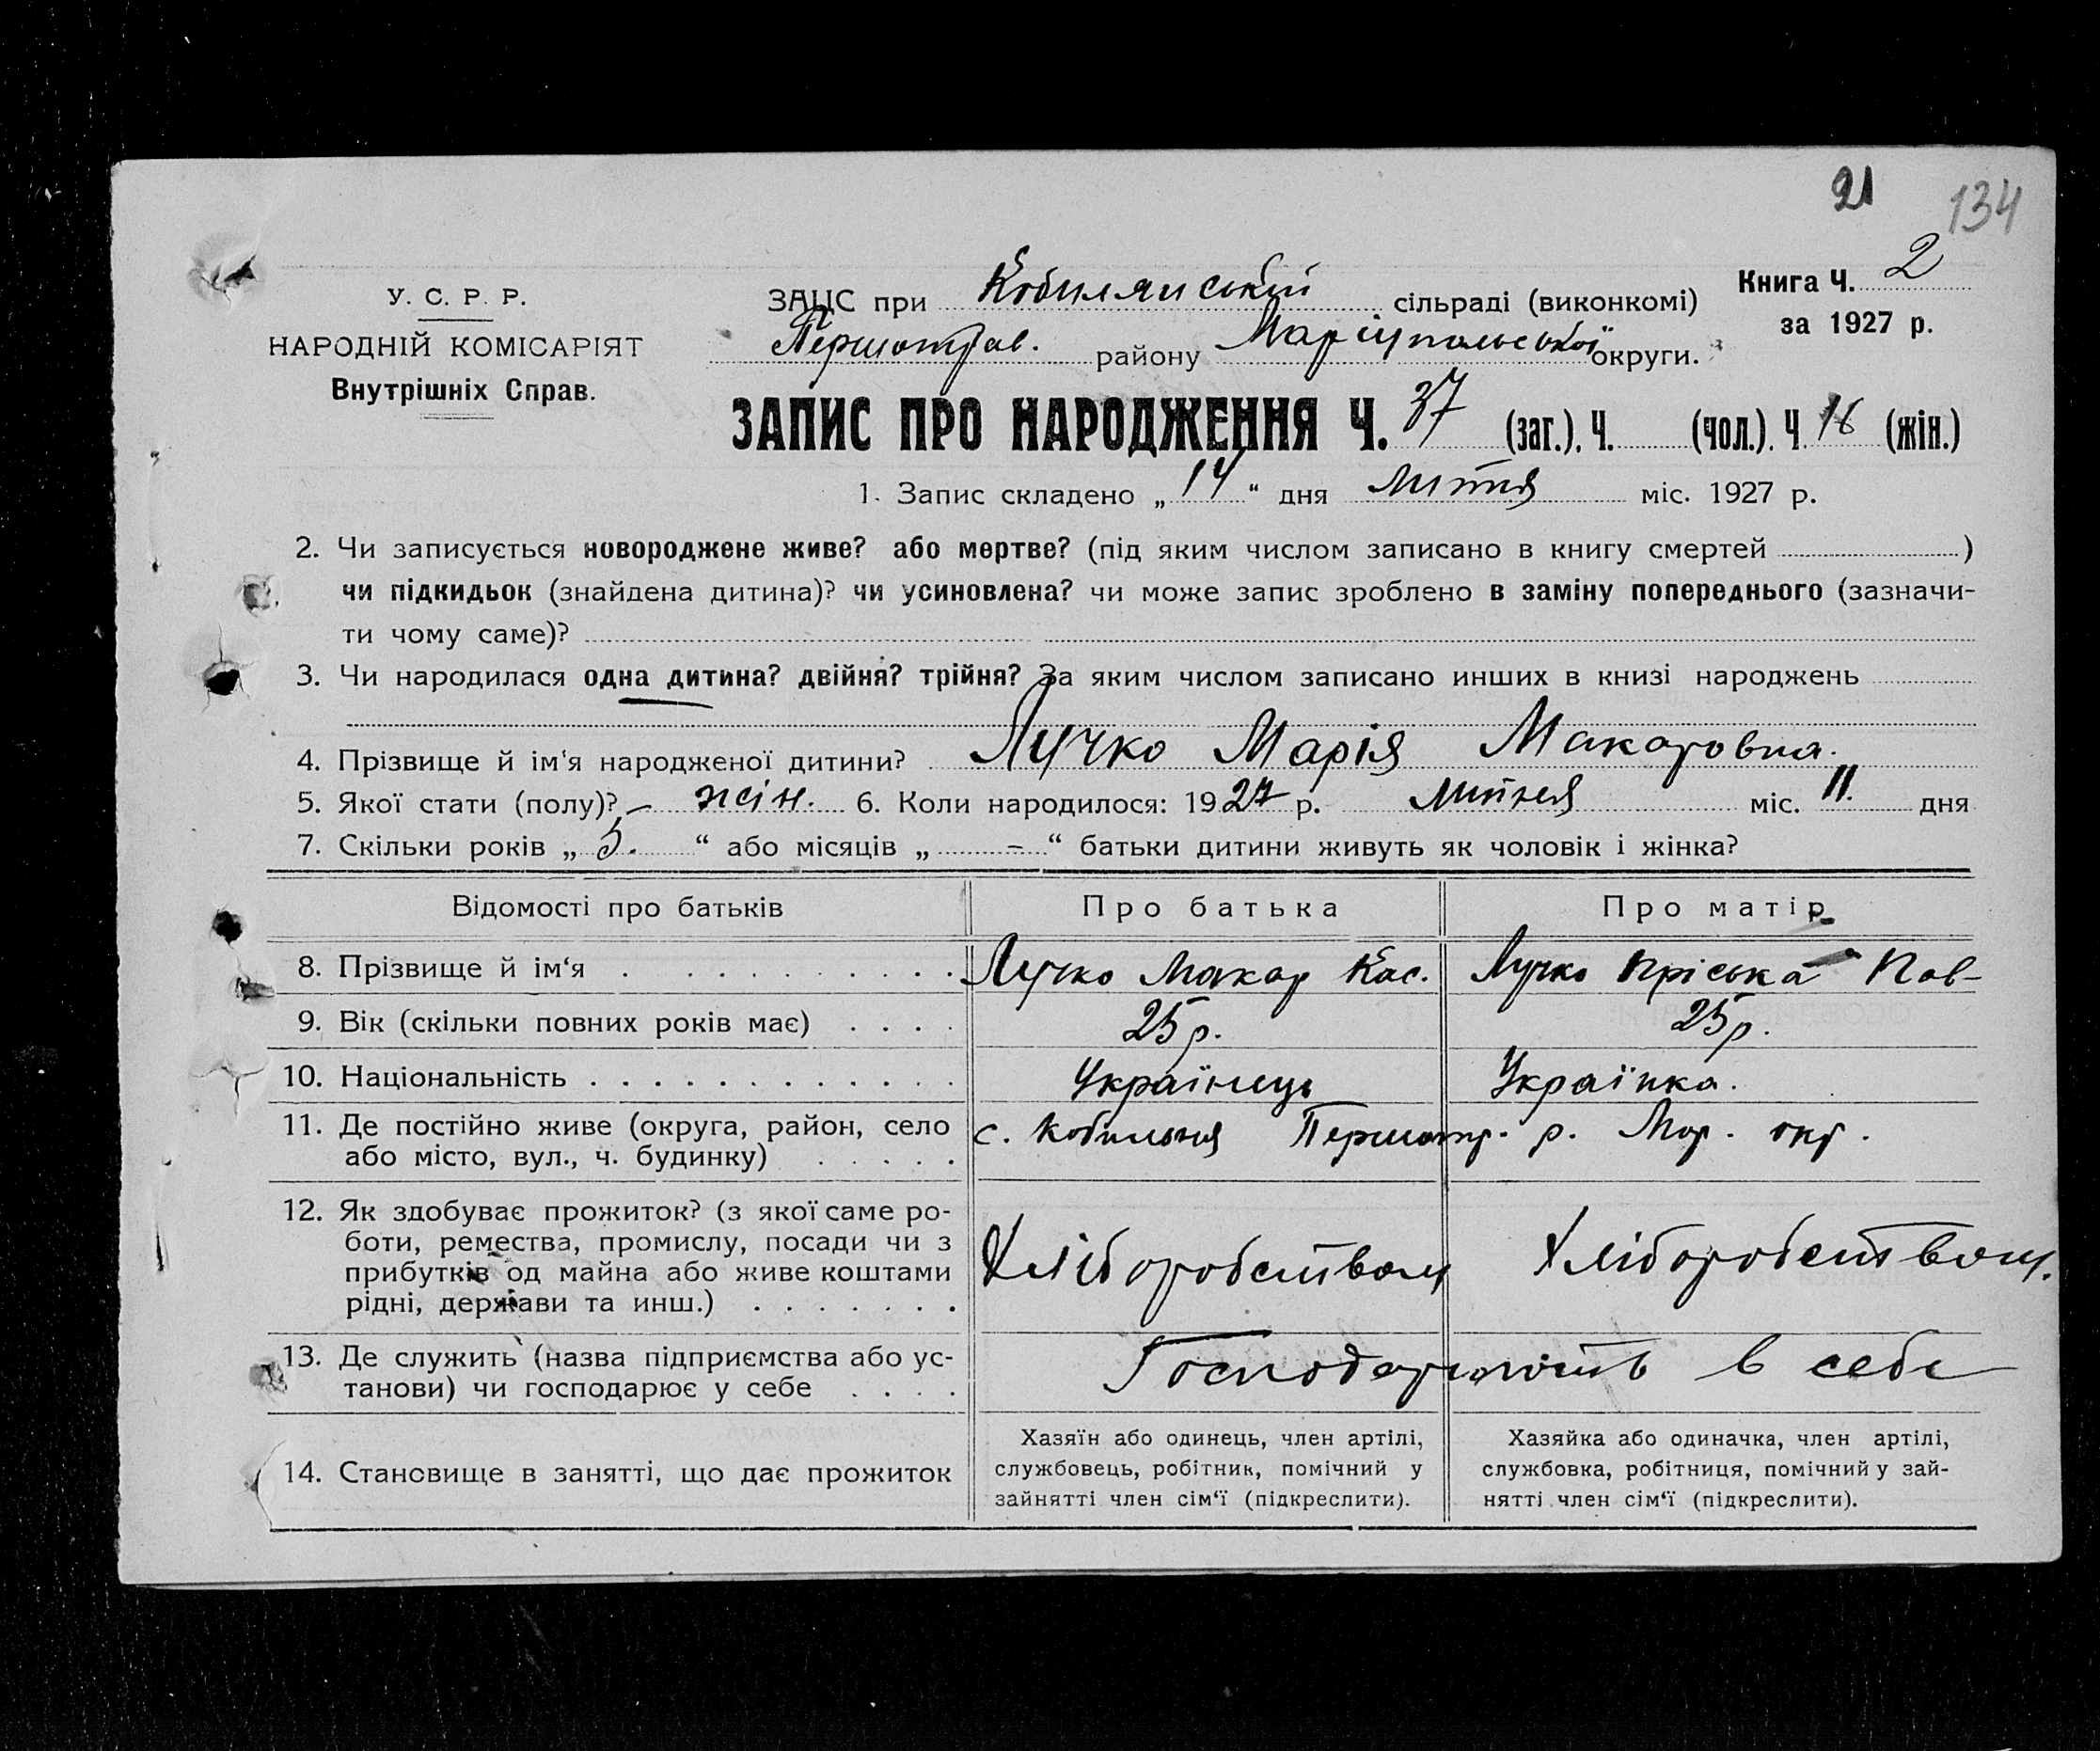 21 134
У. С. Р. Р.
НАРОДНІЙ КОМІСАРІЯТ
Внутрішніх Справ.
ЗАЦС при Кобилянській сільраді (виконкомі)
Книга Ч. 2
за 1927 р.
Першотрав. району Маріупольської округи.
ЗАПИС ПРО НАРОДЖЕННЯ Ч. 37 (заг.), Ч. (чол.). Ч 16 (жін.)
1. Запис складено „ 14 “ дня міс. 1927 р.
2. Чи записується новороджене живе? або мертве? (під яким числом записано в книгу смертей )
чи підкидьок (знайдена дитина)? чи усиновлена? чи може запис зроблено в заміну попереднього (зазначи-
ти чому саме)?
3. Чи народилася одна дитина? двійня? трійня? За яким числом записано инших в книзі народжень
4. Прізвище й ім‘я народженої дитини? Лучко Марія Макаровна.
5. Якої стати (полу)? – жін. 6. Коли народилося: 1927 р. міс. 11. дня
7. Скільки років „ 5. “ або місяців „ – “ батьки дитини живуть як чоловік і жінка?
Відомості про батьків Про батька Про матір
8. Прізвище й ім‘я . . . . . . . . . . Лучко Макар Кас. Лучко Пріська Пав-
9. Вік (скільки повних років має) . . . . 25 р. 25 р.
10. Національність . . . . . . . . . . . . Українець Українка.
11. Де постійно живе (округа, район, село
або місто, вул., ч. будинку) . . . . .
с. Кобильня Першотр. р. Мар. окр.
12. Як здобуває прожиток? (з якої саме ро-
боти, ремества, промислу, посади чи з
прибутків од майна або живе коштами
рідні, держави та инш.) . . . . . . .
Хліборобством Хліборобством.
13. Де служить (назва підприємства або ус-
танови) чи господарює у себе . . . .
Господарюють в себе
14. Становище в занятті, що дає прожиток
Хазяїн або одинець, член артілі,
службовець, робітник, помічний у
зайнятті член сім‘ї (підкреслити).
Хазяйка або одиначка, член артілі,
службовка, робітниця, помічний у зай-
нятті член сім‘ї (підкреслити).